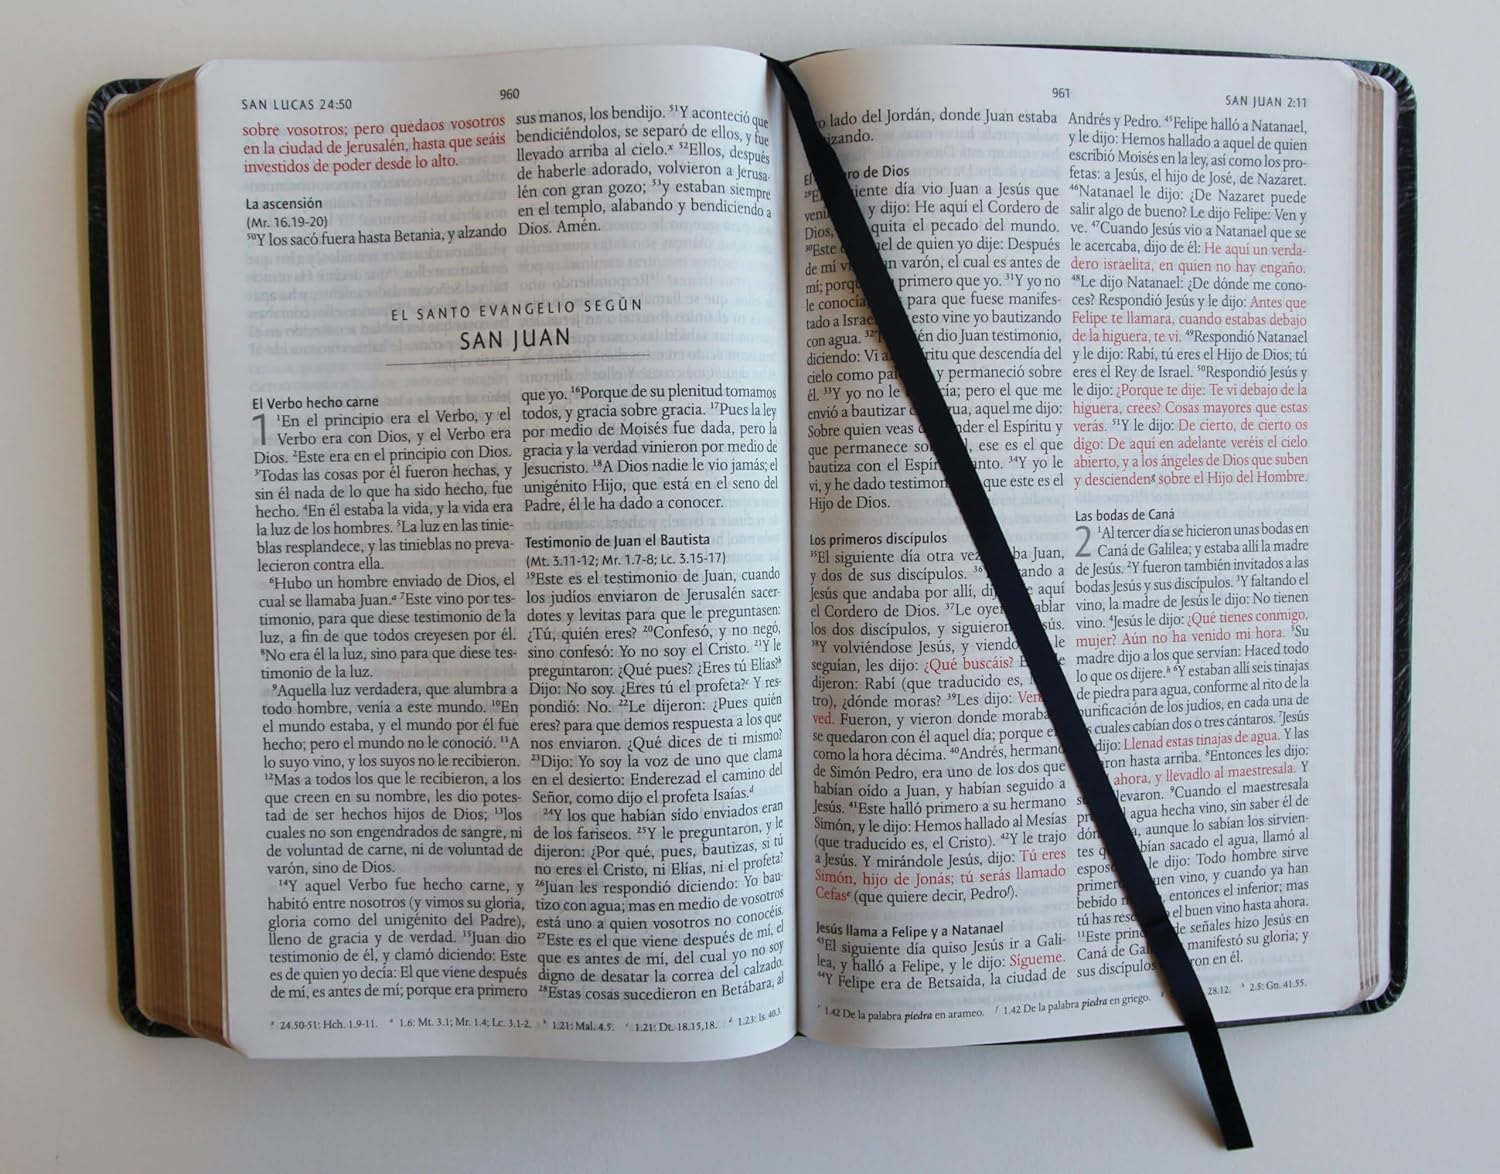 SAN LUCAS 24:50
960
sobre vosotros; pero quedaos vosotros
en la ciudad de Jerusalén, hasta que seáis
investidos de poder desde lo alto.
La ascensión
(Mr. 16.19-20)
⁵⁰Y los sacó fuera hasta Betania, y alzando
sus manos, los bendijo. ⁵¹Y aconteció que
bendiciéndolos, se separó de ellos, y fue
llevado arriba al cielo.ˣ ⁵²Ellos, después
de haberle adorado, volvieron a Jerusa-
lén con gran gozo; ⁵³y estaban siempre
en el templo, alabando y bendiciendo a
Dios. Amén.
EL SANTO EVANGELIO SEGÚN
SAN JUAN
El Verbo hecho carne
1 ¹En el principio era el Verbo, y el
Verbo era con Dios, y el Verbo era
Dios. ²Este era en el principio con Dios.
³Todas las cosas por él fueron hechas, y
sin él nada de lo que ha sido hecho, fue
hecho. ⁴En él estaba la vida, y la vida era
la luz de los hombres. ⁵La luz en las tinie-
blas resplandece, y las tinieblas no preva-
lecieron contra ella.
⁶Hubo un hombre enviado de Dios, el
cual se llamaba Juan.ᵃ ⁷Este vino por tes-
timonio, para que diese testimonio de la
luz, a fin de que todos creyesen por él.
⁸No era él la luz, sino para que diese tes-
timonio de la luz.
⁹Aquella luz verdadera, que alumbra a
todo hombre, venía a este mundo. ¹⁰En
el mundo estaba, y el mundo por él fue
hecho; pero el mundo no le conoció. ¹¹A
lo suyo vino, y los suyos no le recibieron.
¹²Mas a todos los que le recibieron, a los
que creen en su nombre, les dio potes-
tad de ser hechos hijos de Dios; ¹³los
cuales no son engendrados de sangre, ni
de voluntad de carne, ni de voluntad de
varón, sino de Dios.
¹⁴Y aquel Verbo fue hecho carne, y
habitó entre nosotros (y vimos su gloria,
gloria como del unigénito del Padre),
lleno de gracia y de verdad. ¹⁵Juan dio
testimonio de él, y clamó diciendo: Este
es de quien yo decía: El que viene después
de mí, es antes de mí; porque era primero
que yo. ¹⁶Porque de su plenitud tomamos
todos, y gracia sobre gracia. ¹⁷Pues la ley
por medio de Moisés fue dada, pero la
gracia y la verdad vinieron por medio de
Jesucristo. ¹⁸A Dios nadie le vio jamás; el
unigénito Hijo, que está en el seno del
Padre, él le ha dado a conocer.
Testimonio de Juan el Bautista
(Mt. 3.11-12; Mr. 1.7-8; Lc. 3.15-17)
¹⁹Este es el testimonio de Juan, cuando
los judíos enviaron de Jerusalén sacer-
dotes y levitas para que le preguntasen:
¿Tú, quién eres? ²⁰Confesó, y no negó,
sino confesó: Yo no soy el Cristo. ²¹Y le
preguntaron: ¿Qué pues? ¿Eres tú Elías?ᵇ
Dijo: No soy. ¿Eres tú el profeta?ᶜ Y res-
pondió: No. ²²Le dijeron: ¿Pues quién
eres? para que demos respuesta a los que
nos enviaron. ¿Qué dices de ti mismo?
²³Dijo: Yo soy la voz de uno que clama
en el desierto: Enderezad el camino del
Señor, como dijo el profeta Isaías.ᵈ
²⁴Y los que habían sido enviados eran
de los fariseos. ²⁵Y le preguntaron, y le
dijeron: ¿Por qué, pues, bautizas, si tú
no eres el Cristo, ni Elías, ni el profeta?
²⁶Juan les respondió diciendo: Yo bau-
tizo con agua; mas en medio de vosotros
está uno a quien vosotros no conocéis.
²⁷Este es el que viene después de mí, el
que es antes de mí, del cual yo no soy
digno de desatar la correa del calzado.
²⁸Estas cosas sucedieron en Betábara, al
24.50-51: Hch. 1.9-11. ᵃ 1.6: Mt. 3.1; Mr. 1.4; Lc. 3.1-2. ᵇ 1.21: Mal. 4.5. ᶜ 1.21: Dt. 18.15,18. ᵈ 1.23: Is. 40.3.
961
SAN JUAN 2:11
lado del Jordán, donde Juan estaba
El de Dios
vio Juan a Jesús que
y dijo: He aquí el Cordero de
Dios, quita el pecado del mundo.
³⁰Este de quien yo dije: Después
de mí varón, el cual es antes de
mí; primero que yo. ³¹Y yo no
le para que fuese manifes-
tado a esto vine yo bautizando
con agua. dio Juan testimonio,
diciendo: Vi al que descendía del
cielo como y permaneció sobre
él. ³³Y yo no le pero el que me
envió a bautizar aquel me dijo:
Sobre quien veas el Espíritu y
que permanece ese es el que
bautiza con el ³⁴Y yo le
vi, y he dado que este es el
Hijo de Dios.
Los primeros discípulos
³⁵El siguiente día otra vez Juan,
y dos de sus discípulos. ³⁶ a
Jesús que andaba por allí, aquí
el Cordero de Dios. ³⁷Le
los dos discípulos, y siguieron
³⁸Y volviéndose Jesús, y
seguían, les dijo: ¿Qué buscáis?
dijeron: Rabí (que traducido es,
tro), ¿dónde moras? ³⁹Les dijo:
ved. Fueron, y vieron donde
se quedaron con él aquel día; porque
como la hora décima. ⁴⁰Andrés, hermano
de Simón Pedro, era uno de los dos que
habían oído a Juan, y habían seguido a
Jesús. ⁴¹Este halló primero a su hermano
Simón, y le dijo: Hemos hallado al Mesías
(que traducido es, el Cristo). ⁴²Y le trajo
a Jesús. Y mirándole Jesús, dijo: Tú eres
Simón, hijo de Jonás; tú serás llamado
Cefasᵉ (que quiere decir, Pedroᶠ).
Jesús llama a Felipe y a Natanael
⁴³El siguiente día quiso Jesús ir a Gali-
lea, y halló a Felipe, y le dijo: Sígueme.
⁴⁴Y Felipe era de Betsaida, la ciudad de
Andrés y Pedro. ⁴⁵Felipe halló a Natanael,
y le dijo: Hemos hallado a aquel de quien
escribió Moisés en la ley, así como los pro-
fetas: a Jesús, el hijo de José, de Nazaret.
⁴⁶Natanael le dijo: ¿De Nazaret puede
salir algo de bueno? Le dijo Felipe: Ven y
ve. ⁴⁷Cuando Jesús vio a Natanael que se
le acercaba, dijo de él: He aquí un verda-
dero israelita, en quien no hay engaño.
⁴⁸Le dijo Natanael: ¿De dónde me cono-
ces? Respondió Jesús y le dijo: Antes que
Felipe te llamara, cuando estabas debajo
de la higuera, te vi. ⁴⁹Respondió Natanael
y le dijo: Rabí, tú eres el Hijo de Dios; tú
eres el Rey de Israel. ⁵⁰Respondió Jesús y
le dijo: ¿Porque te dije: Te vi debajo de la
higuera, crees? Cosas mayores que estas
verás. ⁵¹Y le dijo: De cierto, de cierto os
digo: De aquí en adelante veréis el cielo
abierto, y a los ángeles de Dios que suben
y desciendenᵍ sobre el Hijo del Hombre.
Las bodas de Caná
2 ¹Al tercer día se hicieron unas bodas en
Caná de Galilea; y estaba allí la madre
de Jesús. ²Y fueron también invitados a las
bodas Jesús y sus discípulos. ³Y faltando el
vino, la madre de Jesús le dijo: No tienen
vino. ⁴Jesús le dijo: ¿Qué tienes conmigo,
mujer? Aún no ha venido mi hora. ⁵Su
madre dijo a los que servían: Haced todo
lo que os dijere.ʰ ⁶Y estaban allí seis tinajas
de piedra para agua, conforme al rito de la
purificación de los judíos, en cada una de
cuales cabían dos o tres cántaros. ⁷Jesús
dijo: Llenad estas tinajas de agua. Y las
hasta arriba. ⁸Entonces les dijo:
ahora, y llevadlo al maestresala. Y
⁹Cuando el maestresala
agua hecha vino, sin saber él de
aunque lo sabían los sirvien-
tes sacado el agua, llamó al
le dijo: Todo hombre sirve
vino, y cuando ya han
bebido entonces el inferior; mas
tú has el buen vino hasta ahora.
¹¹Este de señales hizo Jesús en
Caná de manifestó su gloria; y
sus discípulos en él.
ᵉ 1.42 De la palabra piedra en arameo. ᶠ 1.42 De la palabra piedra en griego. 28.12. ʰ 2.5: Gn. 41.55.